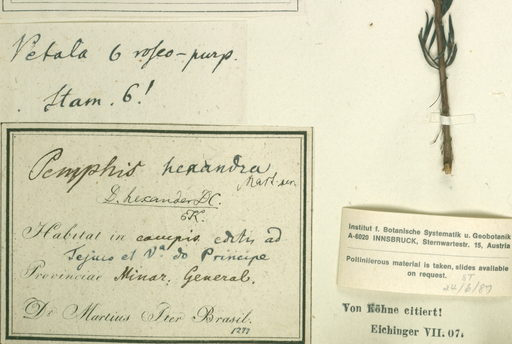 Petala 6 roseo-purp.
Stam. 6!
Pemphis hexandra
Mart. ser.
D. hexander DC.
EK.
Habitat in campis editis ad
Tejuco et Va. do Principe
Provinciae Minar. General.
De Martius Iter Brasil.
Institut f. Botanische Systematik u. Geobotanik
A-6020 INNSBRUCK, Sternwartestr. 15, Austria
Polliniferous material is taken, slides available
on request.
24/6/87
Von Köhne citiert!
Eichinger VII. 07.